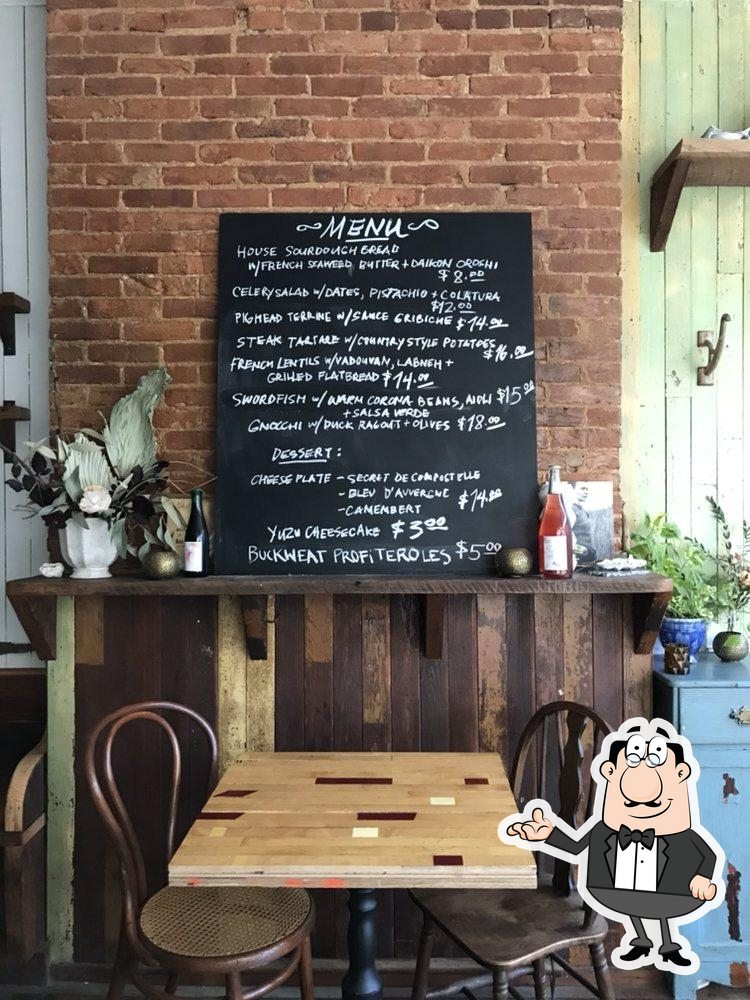 ~MENU~
HOUSE SOURDOUGH BREAD
W/FRENCH SEAWEED BUTTER + DAIKON OROSHI
$8.00
CELERY SALAD W/DATES, PISTACHIO + COLATURA
$12.00
PIGHEAD TERRINE W/SAUCE GRIBICHE $14.00
STEAK TARTARE W/COUNTRY STYLE POTATOES
$16.00
FRENCH LENTILS W/VADOUVAN, LABNEH +
GRILLED FLATBREAD $14.00
SWORDFISH W/ WARM CORONA BEANS, AIOLI $15.00
+ SALSA VERDE
GNOCCHI W/ DUCK RAGOUT + OLIVES $18.00
DESSERT:
CHEESE PLATE - SECRET DE COMPOSTELLE
- BLEU D'AUVERGNE $14.00
- CAMEMBERT
YUZU CHEESECAKE $3.00
BUCKWEAT PROFITEROLES $5.00